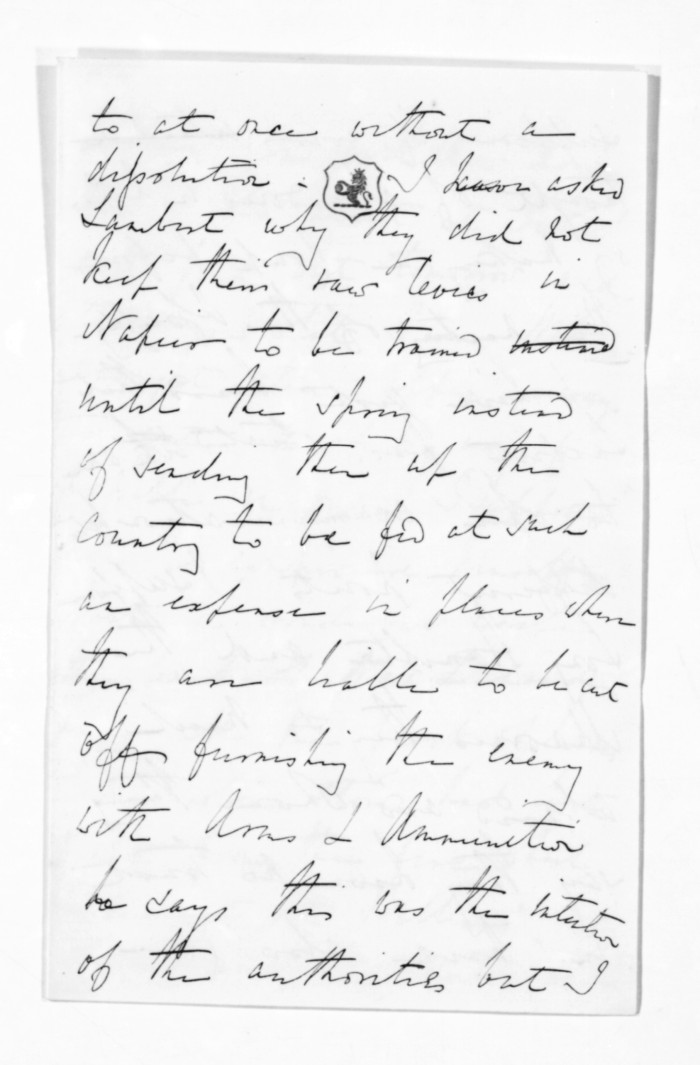 to at once without a
dissolution - I have asked
Lambert why they did not
keep their raw levies in
Napier to be trained instead
until the spring instead
of sending them up the
country to be fed at such
an expense in places where
they are liable to be cut
off furnishing the enemy
with Arms & Ammunition
he says this was the intention
of the authorities but I